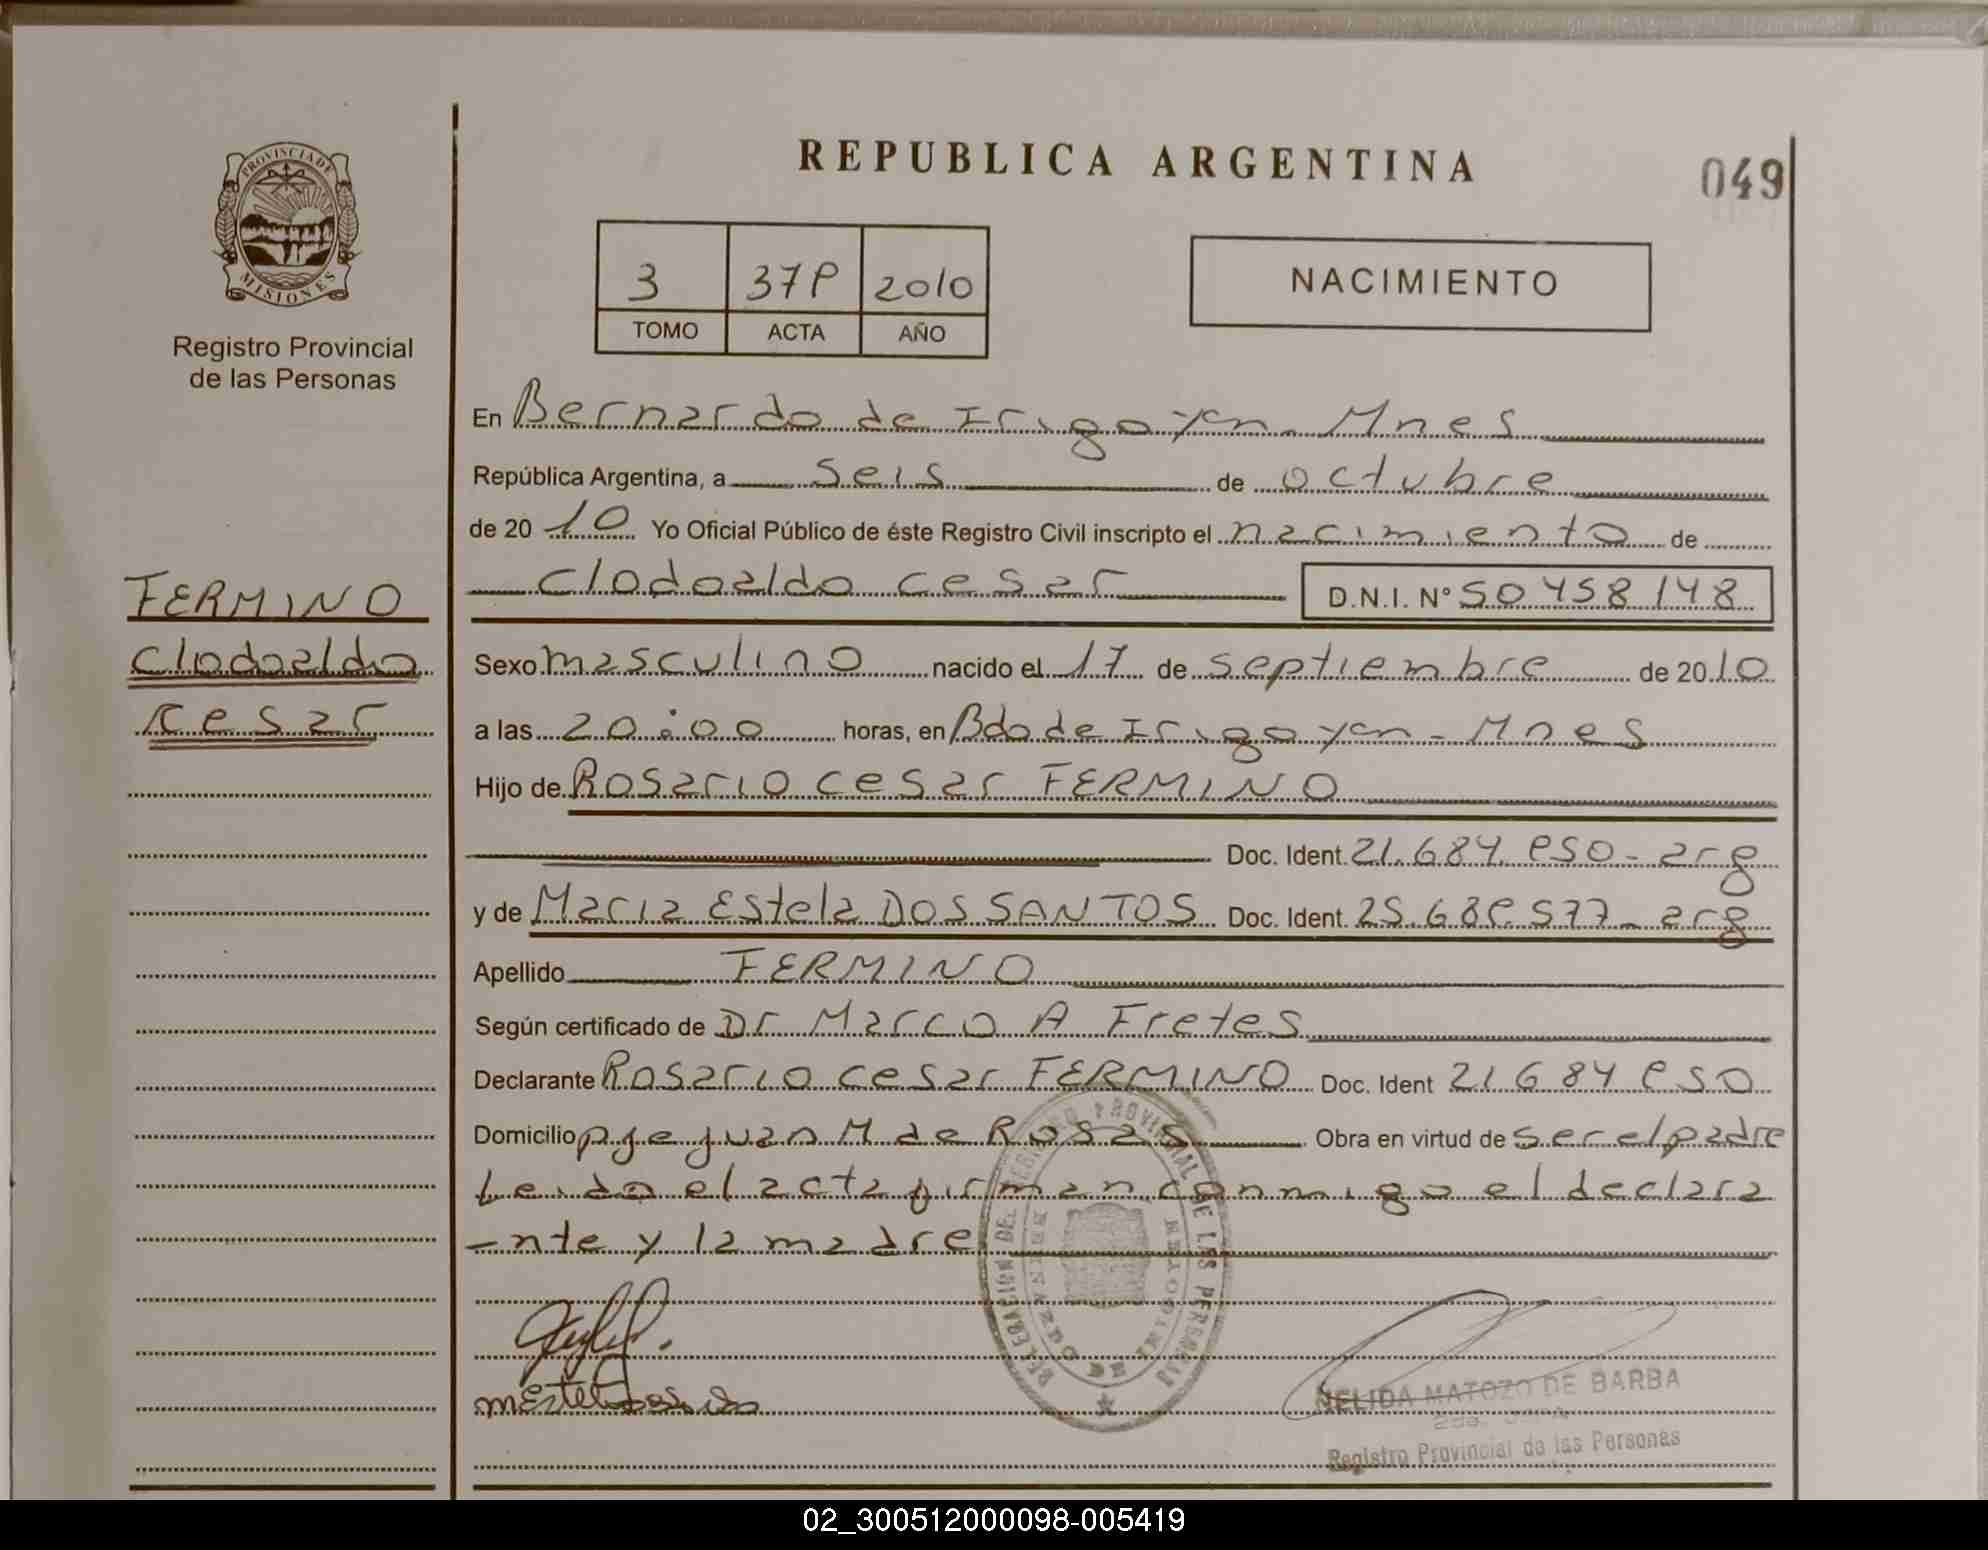 REPUBLICA ARGENTINA
049
PROVINCIA DE MISIONES
Registro Provincial
de las Personas
3 37P 2010
TOMO ACTA AÑO
NACIMIENTO
En Bernardo de Irigoyen - Mnes
República Argentina, a seis de octubre
de 2010 Yo Oficial Público de éste Registro Civil inscripto el nacimiento de
Clodoaldo Cesar D.N.I. N° 50458148
FERMINO
Clodoaldo
Cesar
Sexo masculino nacido el 17 de septiembre de 2010
a las 20:00 horas, en Bdo de Irigoyen - Mnes
Hijo de Rosario Cesar FERMINO
Doc. Ident. 21.684.950 - arg
y de Maria Estela DOS SANTOS Doc. Ident. 25.689.577 - arg
Apellido FERMINO
Según certificado de Dr Marco A Fretes
Declarante Rosario Cesar FERMINO Doc. Ident 21684950
Domicilio pje Juan M de Rosas Obra en virtud de ser el padre
Leido el acta firman conmigo el declara
-nte y la madre
DELEGACION DEL REGISTRO PROVINCIAL DE LAS PERSONAS
NELIDA MATOZO DE BARBA
Registro Provincial de las Personas
02_300512000098-005419